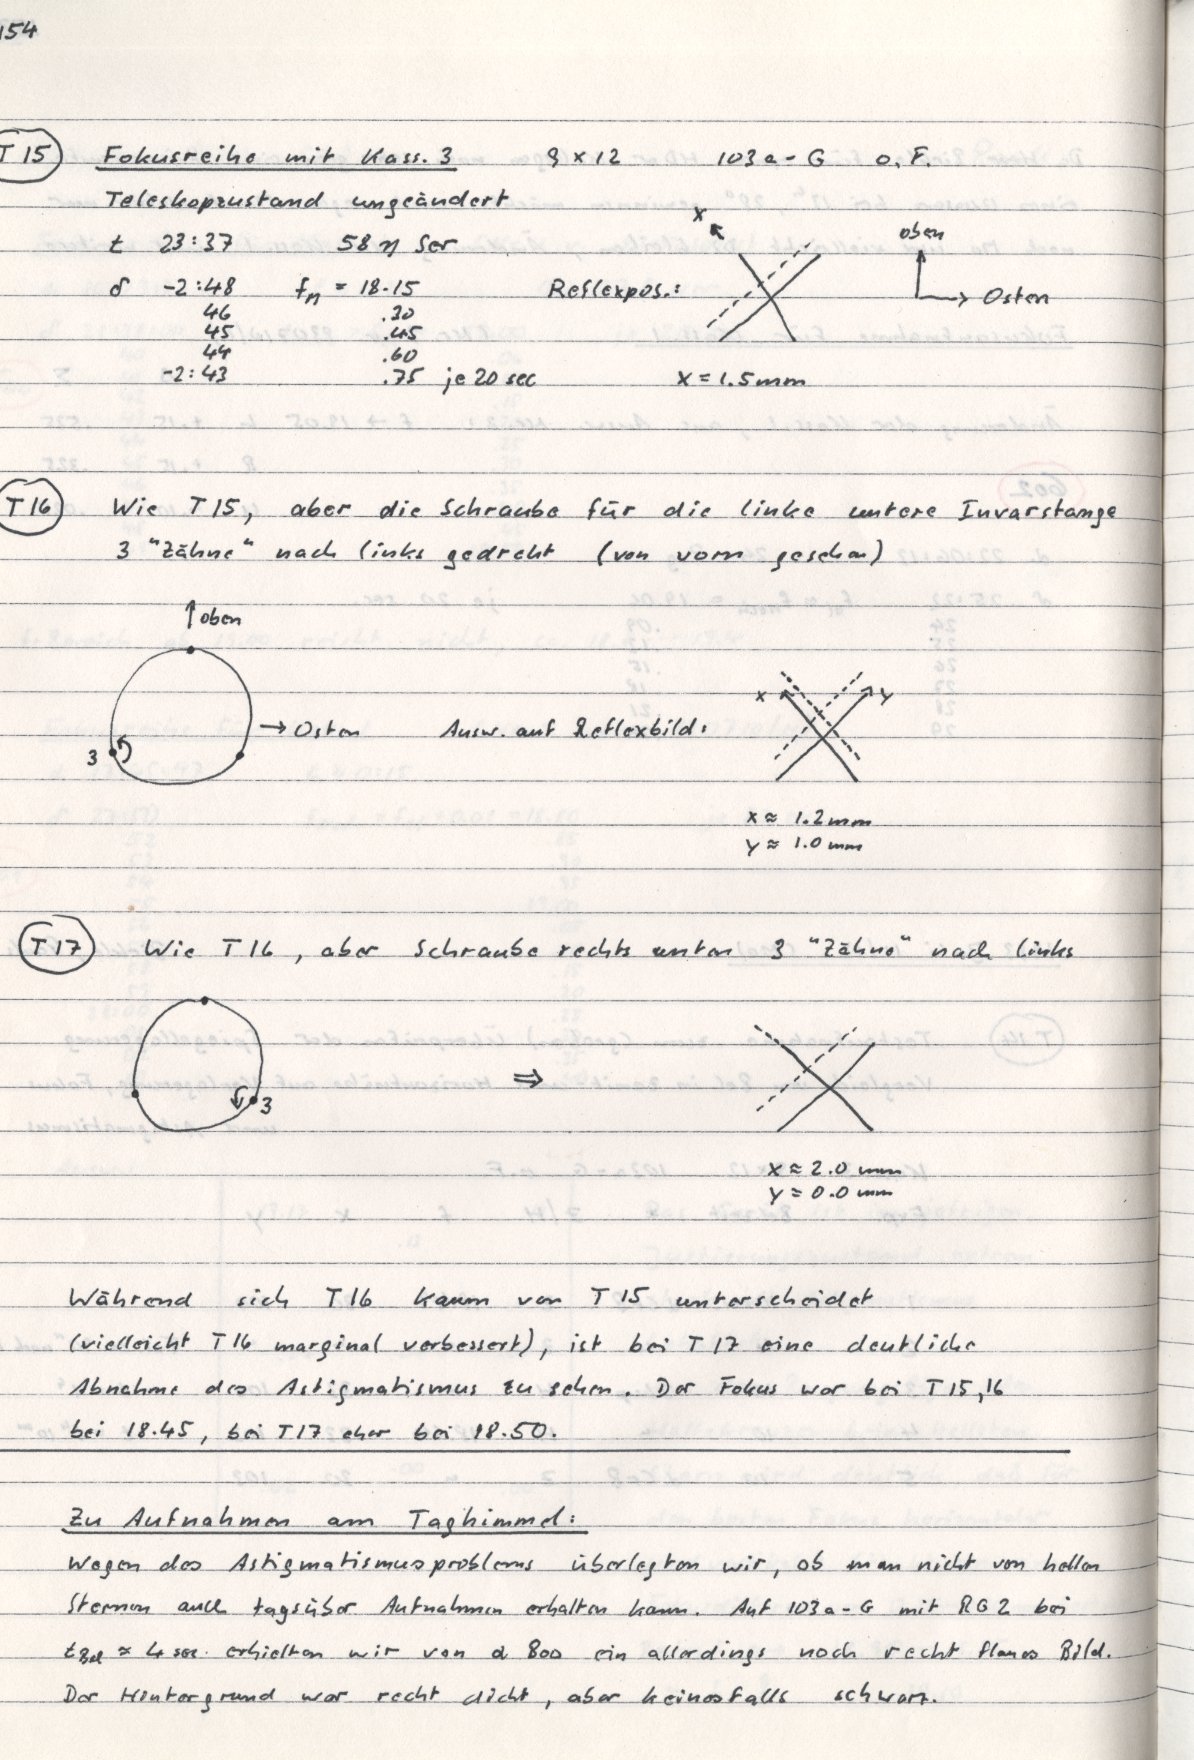 154
T 15 Fokusreihe mit Kass. 3 9 x 12 103a-G o. F.
Teleskopzustand ungeändert
t 23:37 58 η Ser
δ -2:48 fM = 18.15 Reflexpos.: x oben Osten
46 .30
45 .45
44 .60
-2:43 .75 je 20 sec x = 1.5 mm
T 16 Wie T 15, aber die Schraube für die linke untere Invarstange
3 "Zähne" nach links gedreht (von vorn gesehen)
oben
3 → Osten Ausw. auf Reflexbild: x y
x ≈ 1.2 mm
y ≈ 1.0 mm
T 17 Wie T 16, aber Schraube rechts unten 3 "Zähne" nach links
3 ⇒
x ≈ 2.0 mm
y ≈ 0.0 mm
Während sich T 16 kaum von T 15 unterscheidet
(vielleicht T 16 marginal verbessert), ist bei T 17 eine deutliche
Abnahme des Astigmatismus zu sehen. Der Fokus war bei T 15,16
bei 18.45, bei T 17 eher bei 18.50.
Zu Aufnahmen am Taghimmel:
Wegen des Astigmatismusproblems überlegten wir, ob man nicht von hellen
Sternen auch tagsüber Aufnahmen erhalten kann. Auf 103a-G mit RG2 bei
tBel ≈ 4 sec erhielten wir von α Boo ein allerdings noch recht flaues Bild.
Der Hintergrund war recht dicht, aber keinesfalls schwarz.